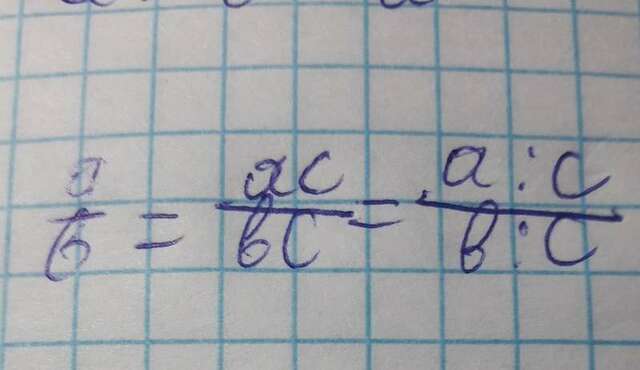 a/b = ac/bc = a:c/b:c